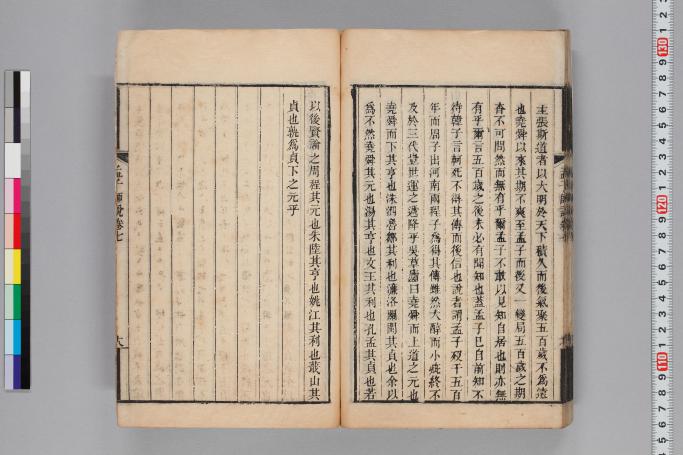 主張斯道者以大明於天下積久而後氣聚五百歲不為遠
也堯舜以來其期不爽至孟子而後又一變局五百歲之期
杳不可問然而無有乎爾孟子不敢以見知自居也則亦無
有乎爾言五百歲之後未必有聞知也蓋孟子已自前知不
待韓子言軻死不得其傳而後信也說者謂孟子歿千五百
年而周子出河南兩程子為得其傳雖然大醇而小疵終不
及於三代豈世運之遞降乎吳草廬曰堯舜而上道之元也
堯舜而下其亨也洙泗魯鄒其利也濂洛關閩其貞也余以
為不然堯舜其元也湯其亨也文王其利也孔孟其貞也若
以後賢論之周程其元也朱陸其亨也姚江其利也蕺山其
貞也孰為貞下之元乎
孟子師說卷七